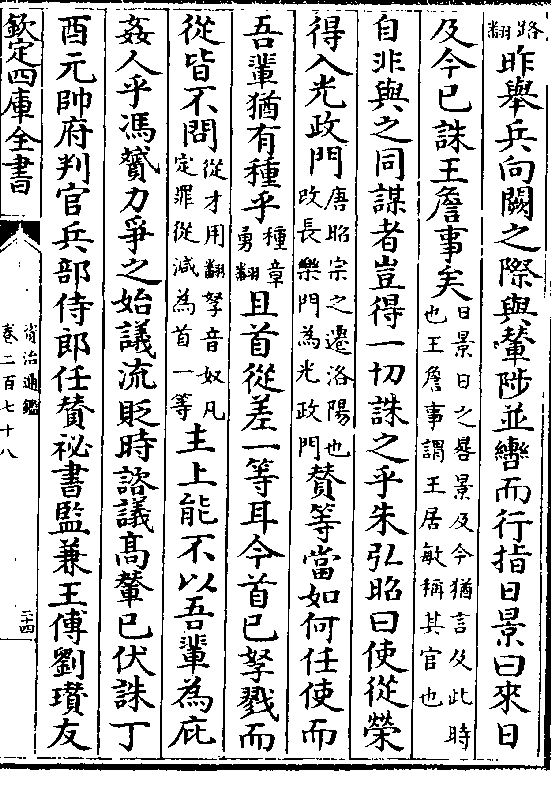 路翻昨舉兵向闕之際與輦陟並轡而行指日景曰來日
及今已誅王詹事矣日景日之晷景及今猶言及此時也王詹事謂王居敏稱其官也
自非與之同謀者豈得一切誅之乎朱弘昭曰使從榮
得入光政門唐昭宗之遷洛陽也改長樂門為光政門贇等當如何任使而
吾輩猶有種乎種章勇翻且首從差一等耳今首已孥戮而
從皆不問從才用翻孥音奴凡定罪從減為首一等主上能不以吾輩為庇
姦人乎馮贇力爭之始議流貶時諮議高輦已伏誅丁
酉元帥府判官兵部侍郎任贊祕書監兼王傅劉瓚友
欽定四庫全書
資治通鑑
卷二百七十八
二十四